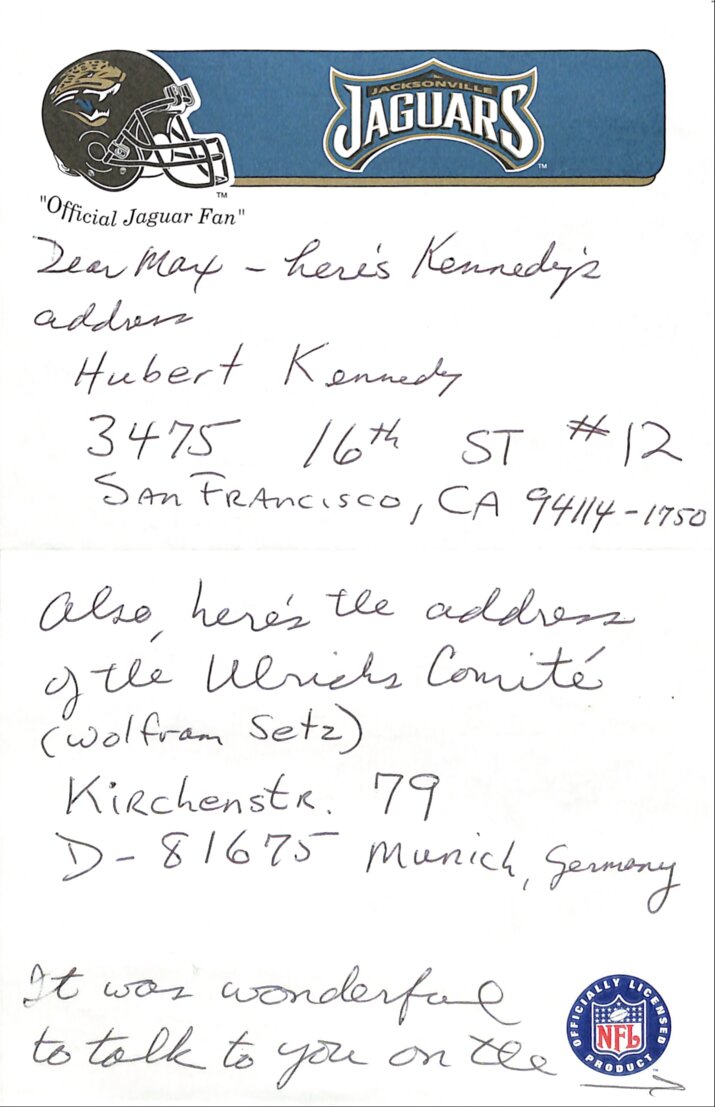 JACKSONVILLE
JAGUARS
TM
TM
"Official Jaguar Fan"
Dear Max – here's Kennedy's
address
Hubert Kennedy
3475 16th ST #12
SAN FRANCISCO, CA 94114-1750
Also, here's the address
of the Ulrichs Comité
(Wolfram Setz)
Kirchenstr. 79
D-81675 Munich, Germany
It was wonderful
to talk to you on the
OFFICIALLY LICENSED
NFL
PRODUCT
TM